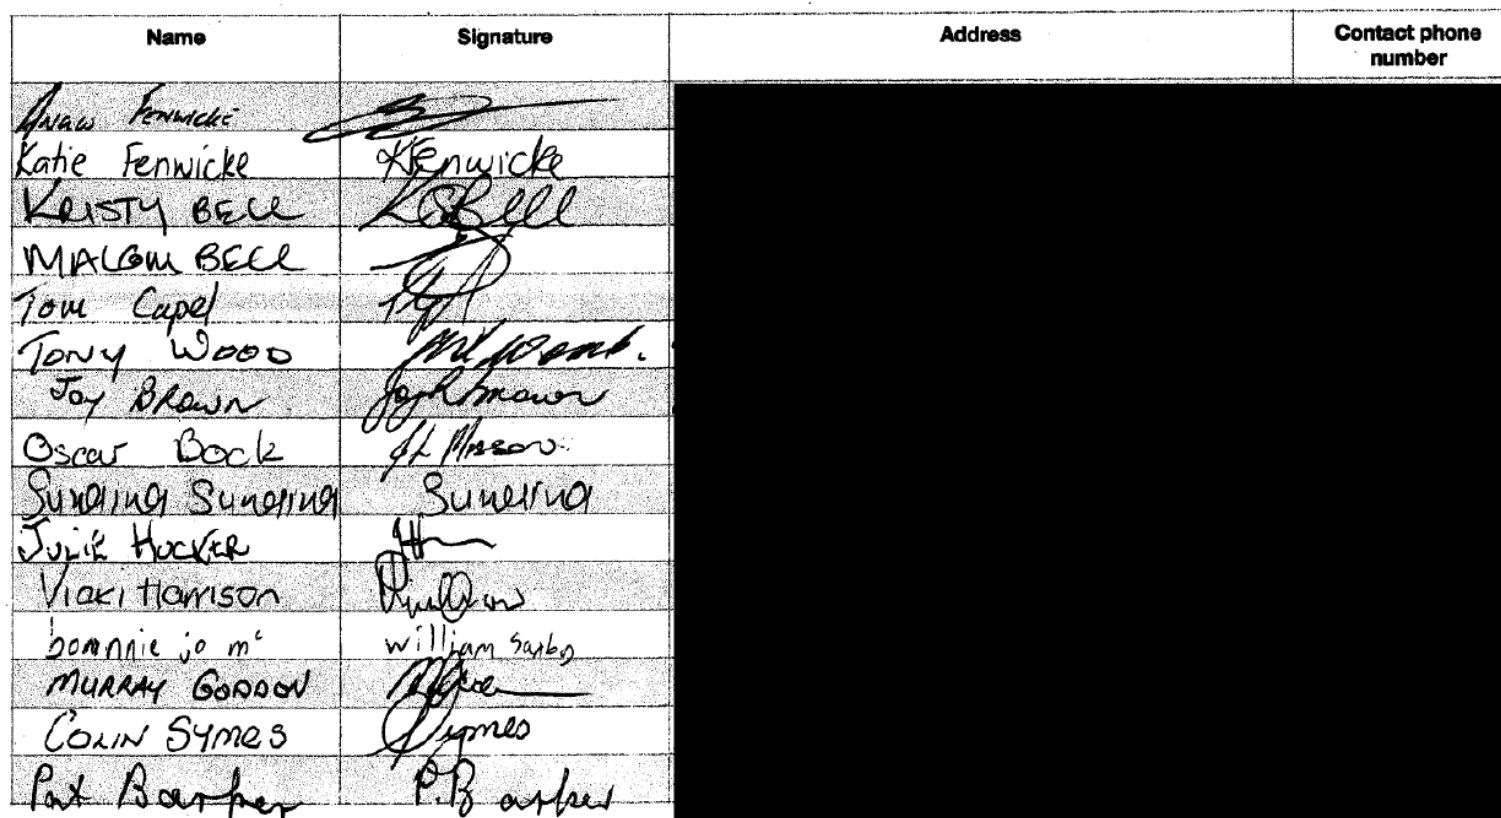 Name Signature Address Contact phone number
Fenwicke
Katie Fenwicke KFenwicke
KRISTY BELL KGBell
MALCOLM BELL
Tom Capel
TONY WOOD
Joy BROWN Joy R Brown
Oscar Bock
JULIE HOCKER
Vicki Harrison
bonnnie jo mc william
MURRAY GORDON
COLIN SYMES Symes
Pat Barker P.Barker